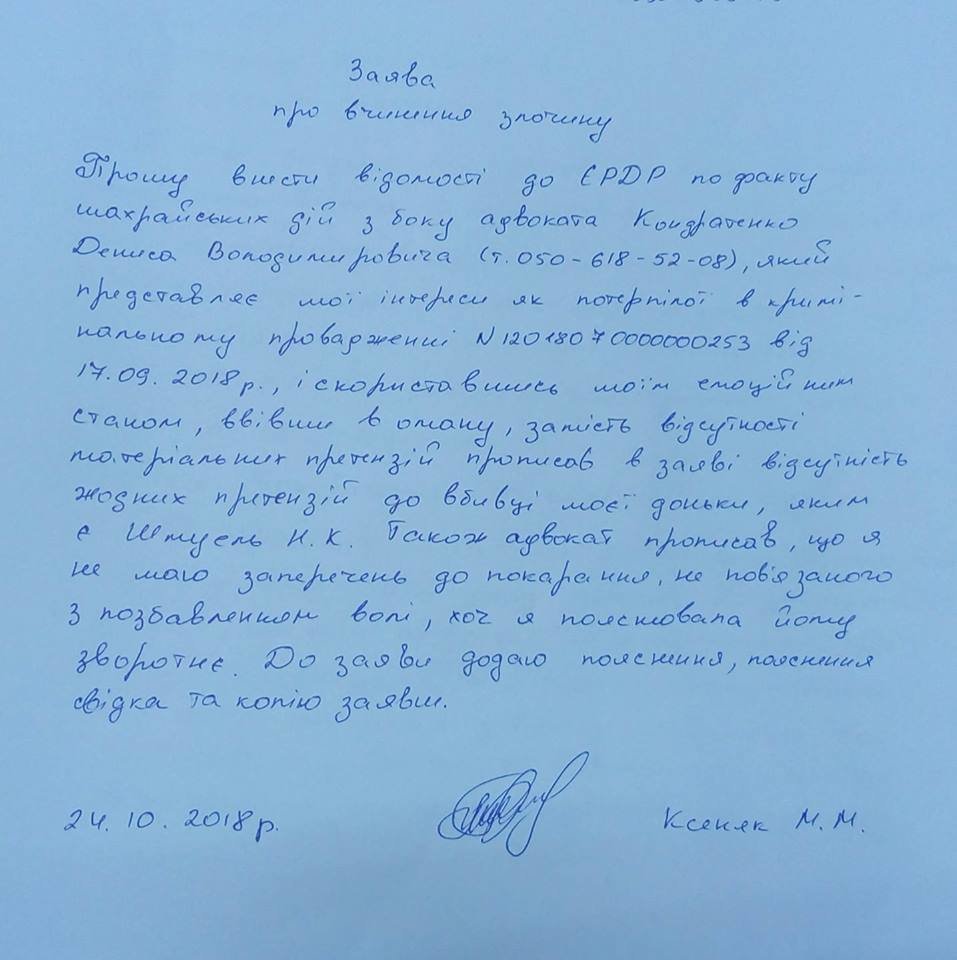 Заява
про вчинення злочину
Прошу внести відомості до ЄРДР по факту
шахрайських дій з боку адвоката Кондратенко
Дениса Володимировича (т. 050-618-52-08), який
представляє мої інтереси як потерпілої в кримі-
нальному провадженні N12018070000000253 від
17.09.2018р., і скориставшись моїм емоційним
станом, ввівши в оману, замість відсутності
матеріальних претензій прописав в заяві відсутність
жодних претензій до вбивці моєї доньки, яким
є Шмуель Н.К. Також адвокат прописав, що я
не маю заперечень до покарання, не пов'язаного
з позбавленням волі, хоч я пояснювала йому
зворотнє. До заяви додаю пояснення, пояснення
свідка та копію заяви.
24.10.2018р. Ксеняк М.М.